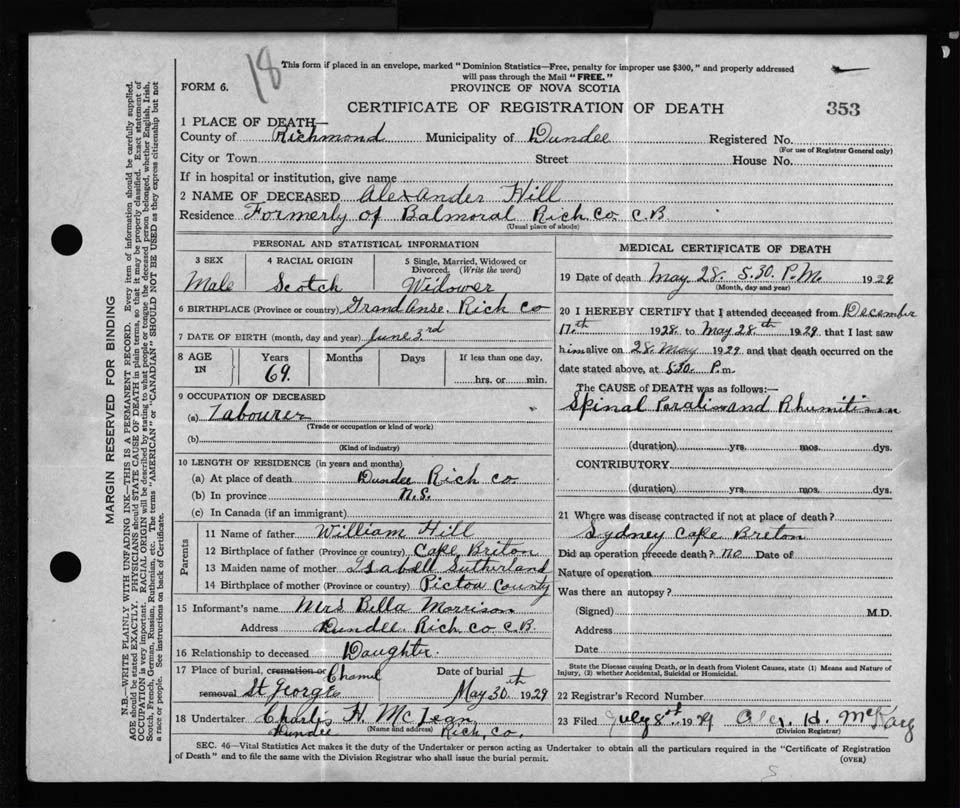 18
This form if placed in an envelope, marked "Dominion Statistics—Free, penalty for improper use $300," and properly addressed
will pass through the Mail "FREE."
FORM 6.
PROVINCE OF NOVA SCOTIA
CERTIFICATE OF REGISTRATION OF DEATH
353
1 PLACE OF DEATH—
County of Richmond Municipality of Dundee Registered No.
(For use of Registrar General only)
City or Town Street House No.
If in hospital or institution, give name
2 NAME OF DECEASED Alexander Hill
Residence Formerly of Balmoral Rich. Co C.B.
(Usual place of abode)
PERSONAL AND STATISTICAL INFORMATION
3 SEX
Male
4 RACIAL ORIGIN
Scotch
5 Single, Married, Widowed or
Divorced. (Write the word)
Widower
6 BIRTHPLACE (Province or country) Grandanse. Rich Co
7 DATE OF BIRTH (month, day and year) June 3rd
8 AGE
IN
Years
69.
Months
Days
If less than one day,
hrs. or min.
9 OCCUPATION OF DECEASED
(a) Labourer
(Trade or occupation or kind of work)
(b)
(Kind of industry)
10 LENGTH OF RESIDENCE (in years and months)
(a) At place of death Dundee Rich Co.
(b) In province N.S.
(c) In Canada (if an immigrant)
Parents
11 Name of father William Hill
12 Birthplace of father (Province or country) Cape Briton
13 Maiden name of mother Isabell Sutherland
14 Birthplace of mother (Province or country) Pictou County
15 Informant's name Mrs Bella Morrison
Address Dundee. Rich Co C.B.
16 Relationship to deceased Daughter.
17 Place of burial, cremation or
removal St Georges
Date of burial
May 30th 1929
18 Undertaker Charlis H. McLean
(Name and address)
Dundee Rich, Co.
MEDICAL CERTIFICATE OF DEATH
19 Date of death May 28. 5.30 P.M. 1929
(Month, day and year)
20 I HEREBY CERTIFY that I attended deceased from December
17th 1928 to May 28th 1929 that I last saw
him alive on 28 May 1929 and that death occurred on the
date stated above, at 5.30 P.m.
The CAUSE of DEATH was as follows:—
Spinal and Rhumitism
(duration) yrs. mos. dys.
CONTRIBUTORY
(duration) yrs. mos. dys.
21 Where was disease contracted if not at place of death?
Sydney Cape Breton
Did an operation precede death? no Date of
Nature of operation
Was there an autopsy?
(Signed) M.D.
Address
Date
State the Disease causing Death, or in death from Violent Causes, state (1) Means and Nature of
Injury, (2) whether Accidental, Suicidal or Homicidal.
22 Registrar's Record Number
23 Filed July 8th 1929 Alex. H.
(Division Registrar)
SEC. 46—Vital Statistics Act makes it the duty of the Undertaker or person acting as Undertaker to obtain all the particulars required in the "Certificate of Registration
of Death" and to file the same with the Division Registrar who shall issue the burial permit.
(OVER)
MARGIN RESERVED FOR BINDING
N.B.—WRITE PLAINLY WITH UNFADING INK—THIS IS A PERMANENT RECORD. Every item of information should be carefully supplied.
AGE should be stated EXACTLY. PHYSICIANS should STATE CAUSE OF DEATH in plain terms, so that it may be properly classified. Exact statement of
OCCUPATION is very important. RACIAL ORIGIN will be described by stating to what people or tongue the deceased person belonged, whether English, Irish,
Scotch, French, German, Russian, Ruthenian, etc. The terms "AMERICAN" or "CANADIAN" SHOULD NOT BE USED as they express citizenship but not
a race or people. See instructions on back of Certificate.